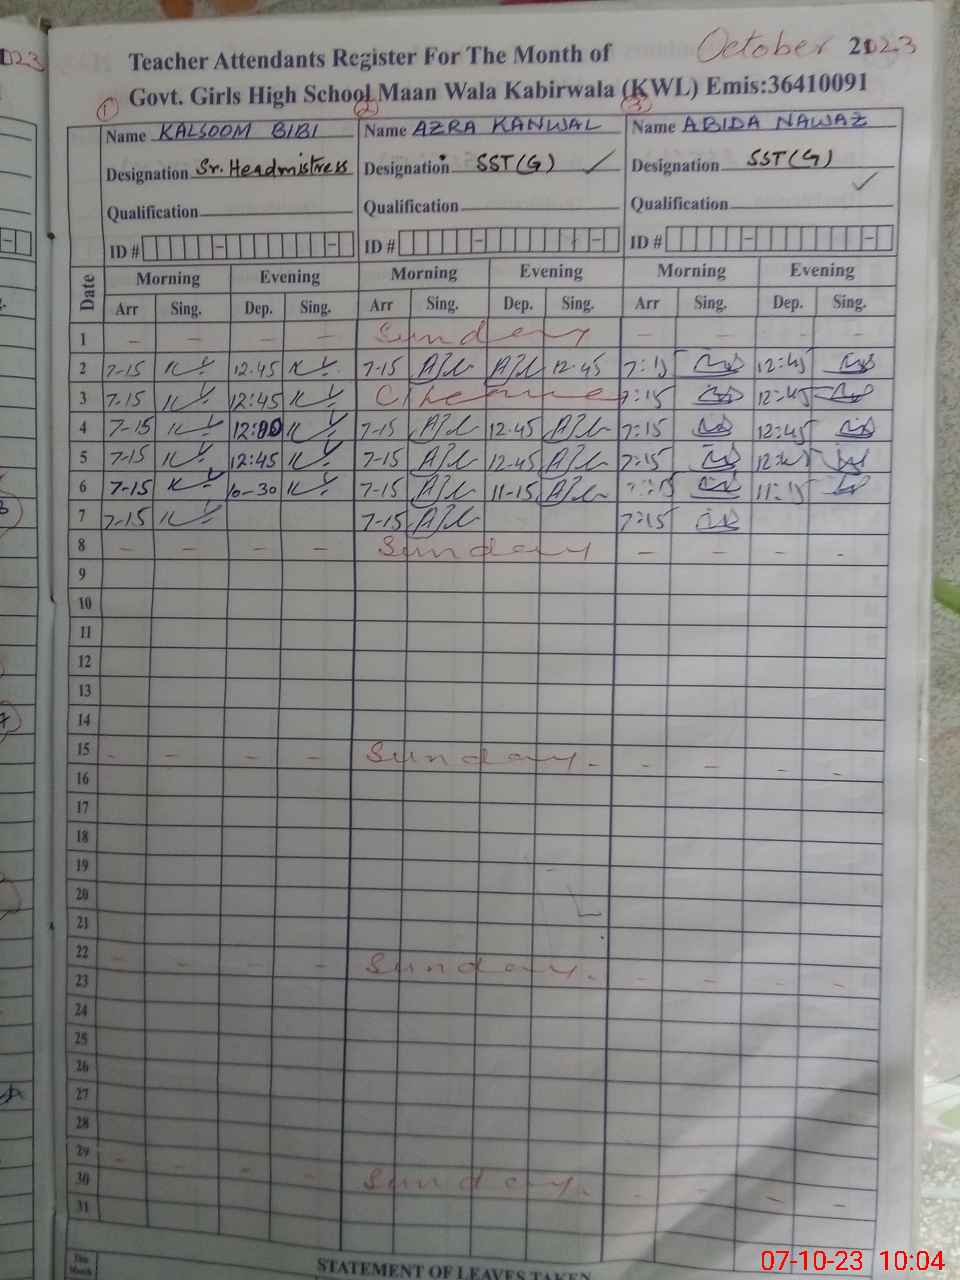 Teacher Attendants Register For The Month of October 2023
Govt. Girls High School Maan Wala Kabirwala (KWL) Emis:36410091
1 2 3
Name KALSOOM BIBI Name AZRA KANWAL Name ABIDA NAWAZ
Designation Sr. Headmistress Designation SST(G) Designation SST(G)
Qualification Qualification Qualification
ID # ID # ID #
Date Morning Evening Morning Evening Morning Evening
Arr Sing. Dep. Sing. Arr Sing. Dep. Sing. Arr Sing. Dep. Sing.
1 - - - - Sunday - - - -
2 7-15 12.45 7-15 12.45 7:15 12:45
3 7.15 12:45 7:15 12:45
4 7-15 7-15 12.45 7:15 12:45
5 7-15 12:45 7-15 12-45 7:15
6 7-15 10-30 7-15 11-15 11:15
7 7-15 7-15 7:15
8 - - - - Sunday - - - -
9
10
11
12
13
14
15 - - - - Sunday. - - - -
16
17
18
19
20
21
22 - - - - Sunday. - - - -
23
24
25
26
27
28
29 - - - - Sunday. - - - -
30
31
STATEMENT OF LEAVES TAKEN
07-10-23 10:04